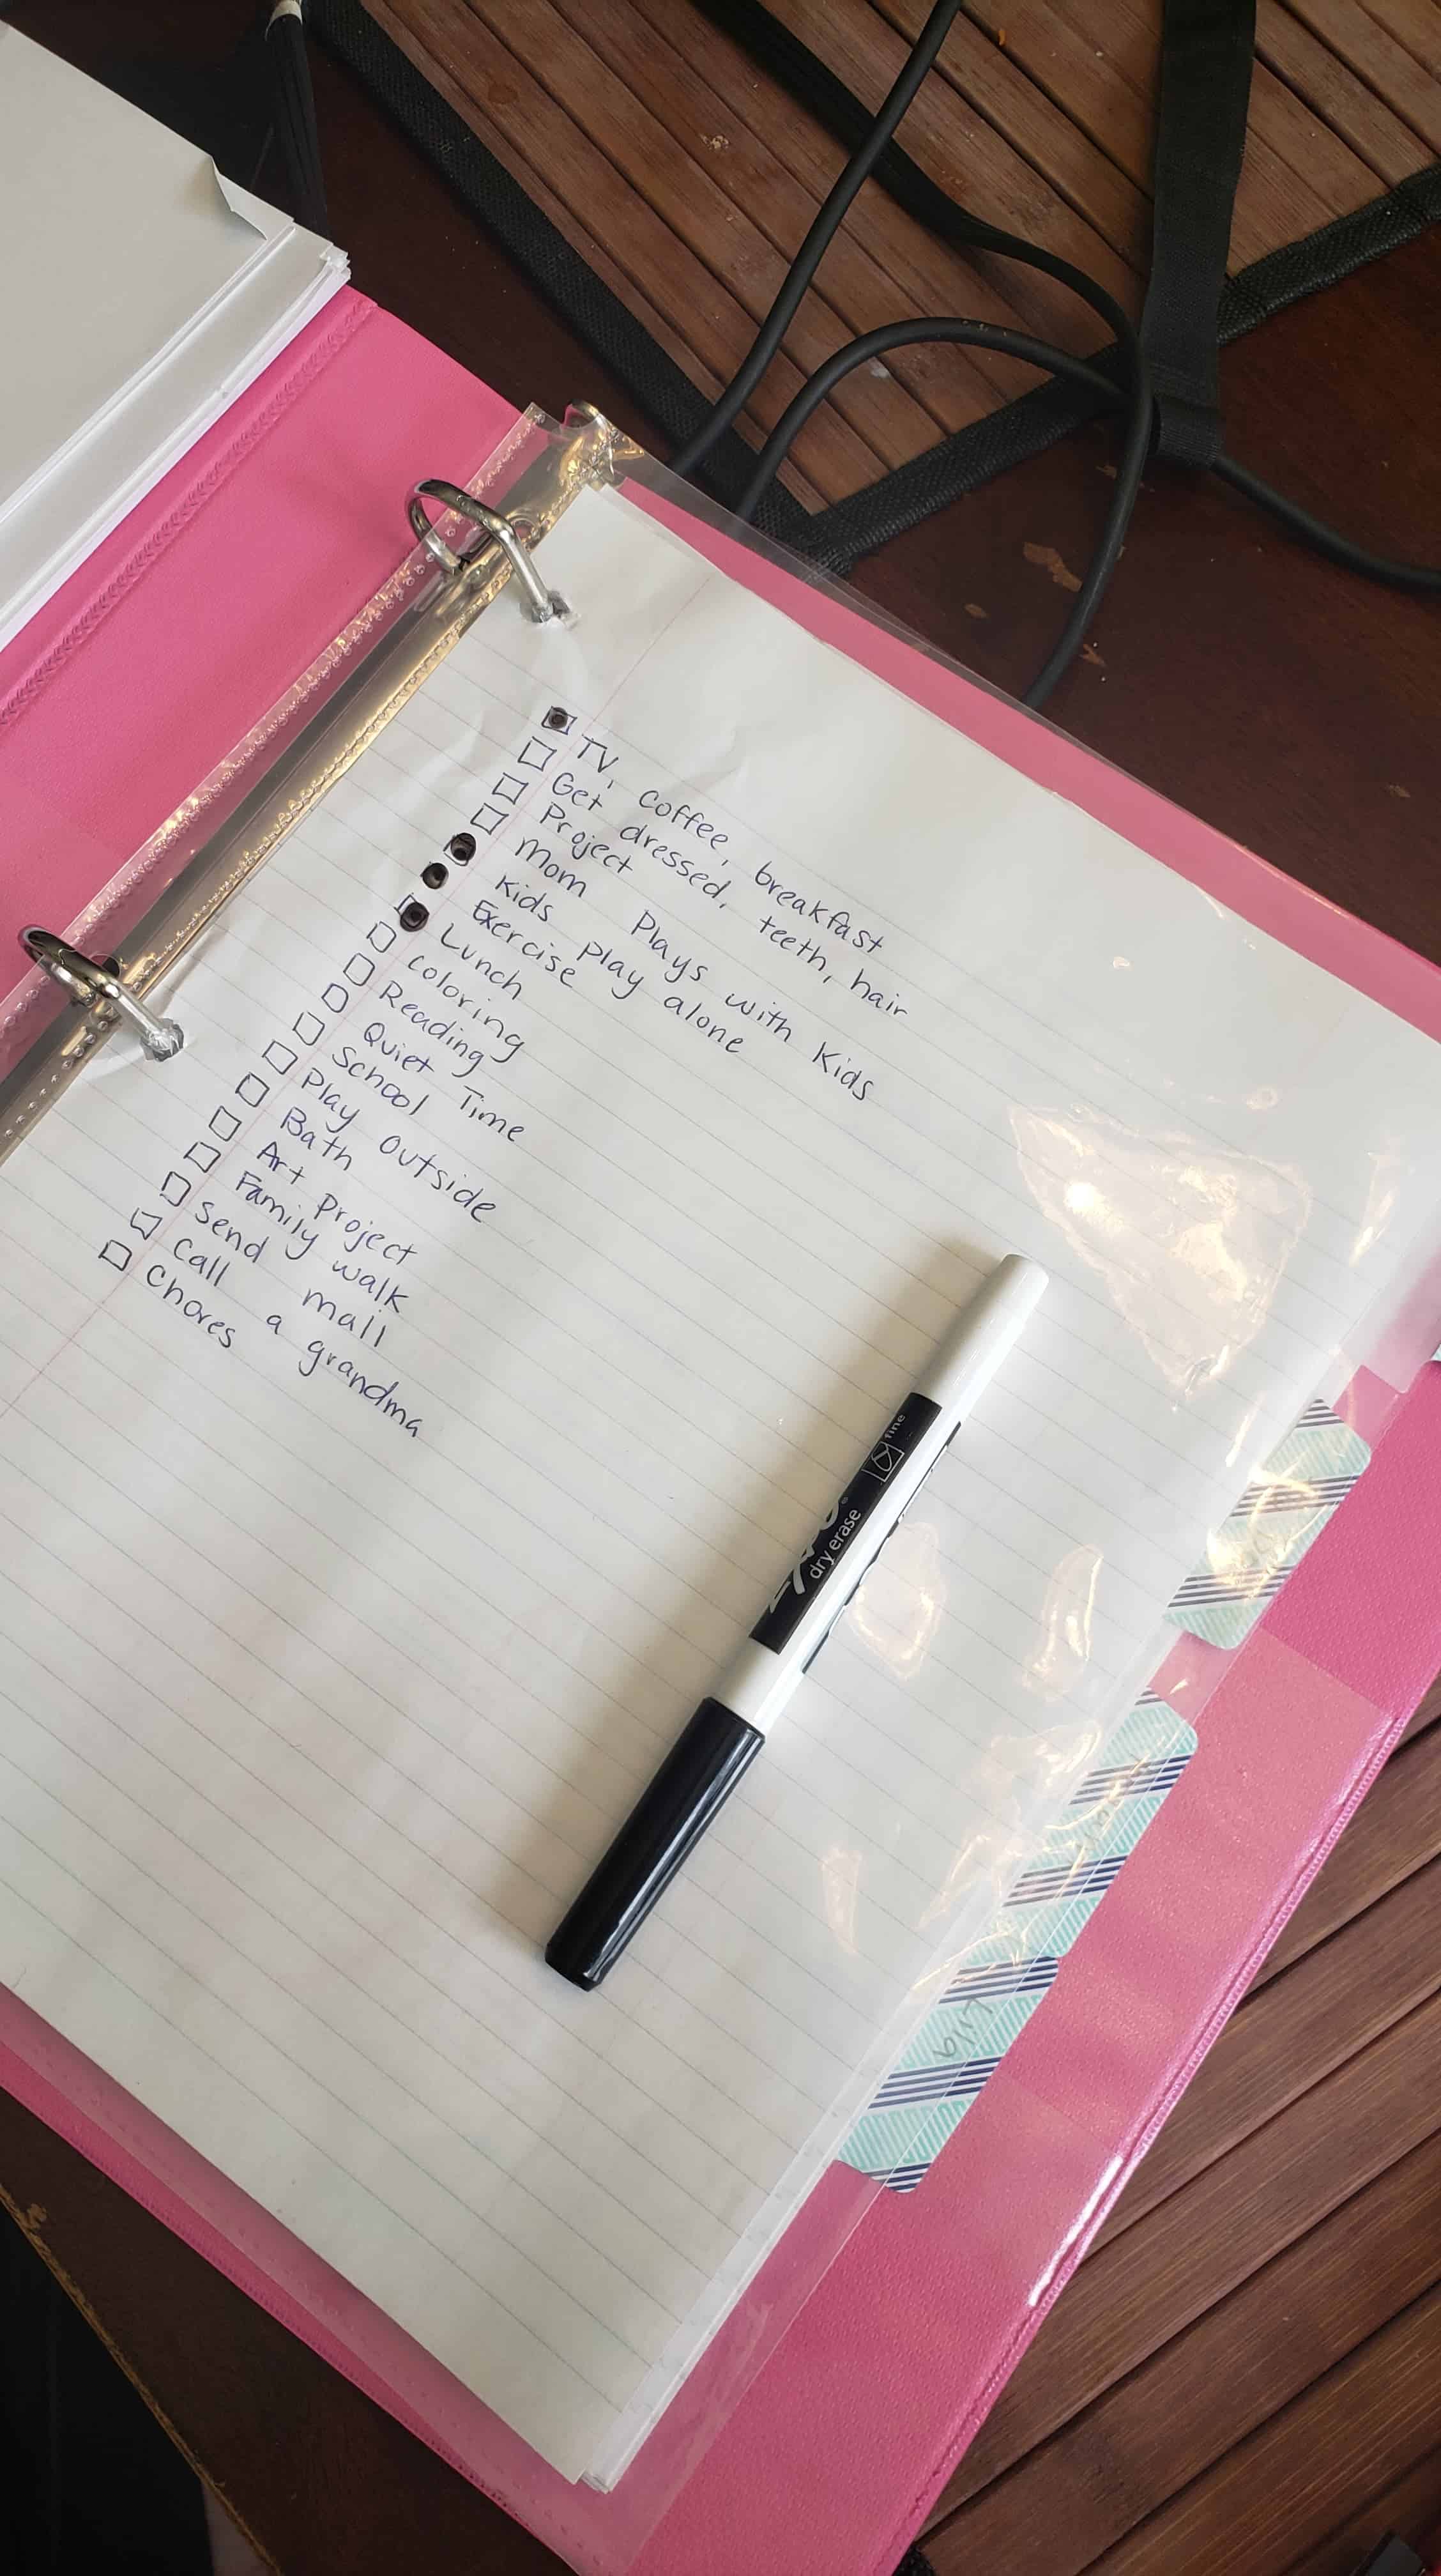 TV, coffee, breakfast
Get dressed, teeth, hair
Project
Mom Plays with Kids
Kids play alone
Exercise
Lunch
coloring
Reading
Quiet Time
School
Play outside
Bath
Art Project
Family walk
Send mail
Call a grandma
Chores
fine
dry erase
Lila